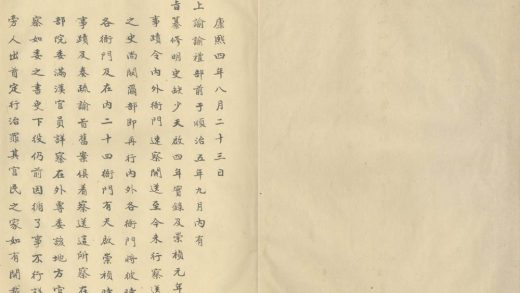 康熙四年八月二十三日
上諭諭禮部前于順治五年九月內有
旨纂修明史缺少天啟四年實錄及崇禎元年
事蹟令內外衙門速察開送至今未行察送
之史尚闕爾部即再行內外各衙門將彼時
各衙門及在內二十四衙門有天啟崇禎時
事蹟及奏疏諭旨舊案俱着察送這所察在
部院委滿漢官員詳察在外專委該地方官
察如委之書吏下役仍前因循了事不行詳
旁人出首定行治罪其官民之家如有開載